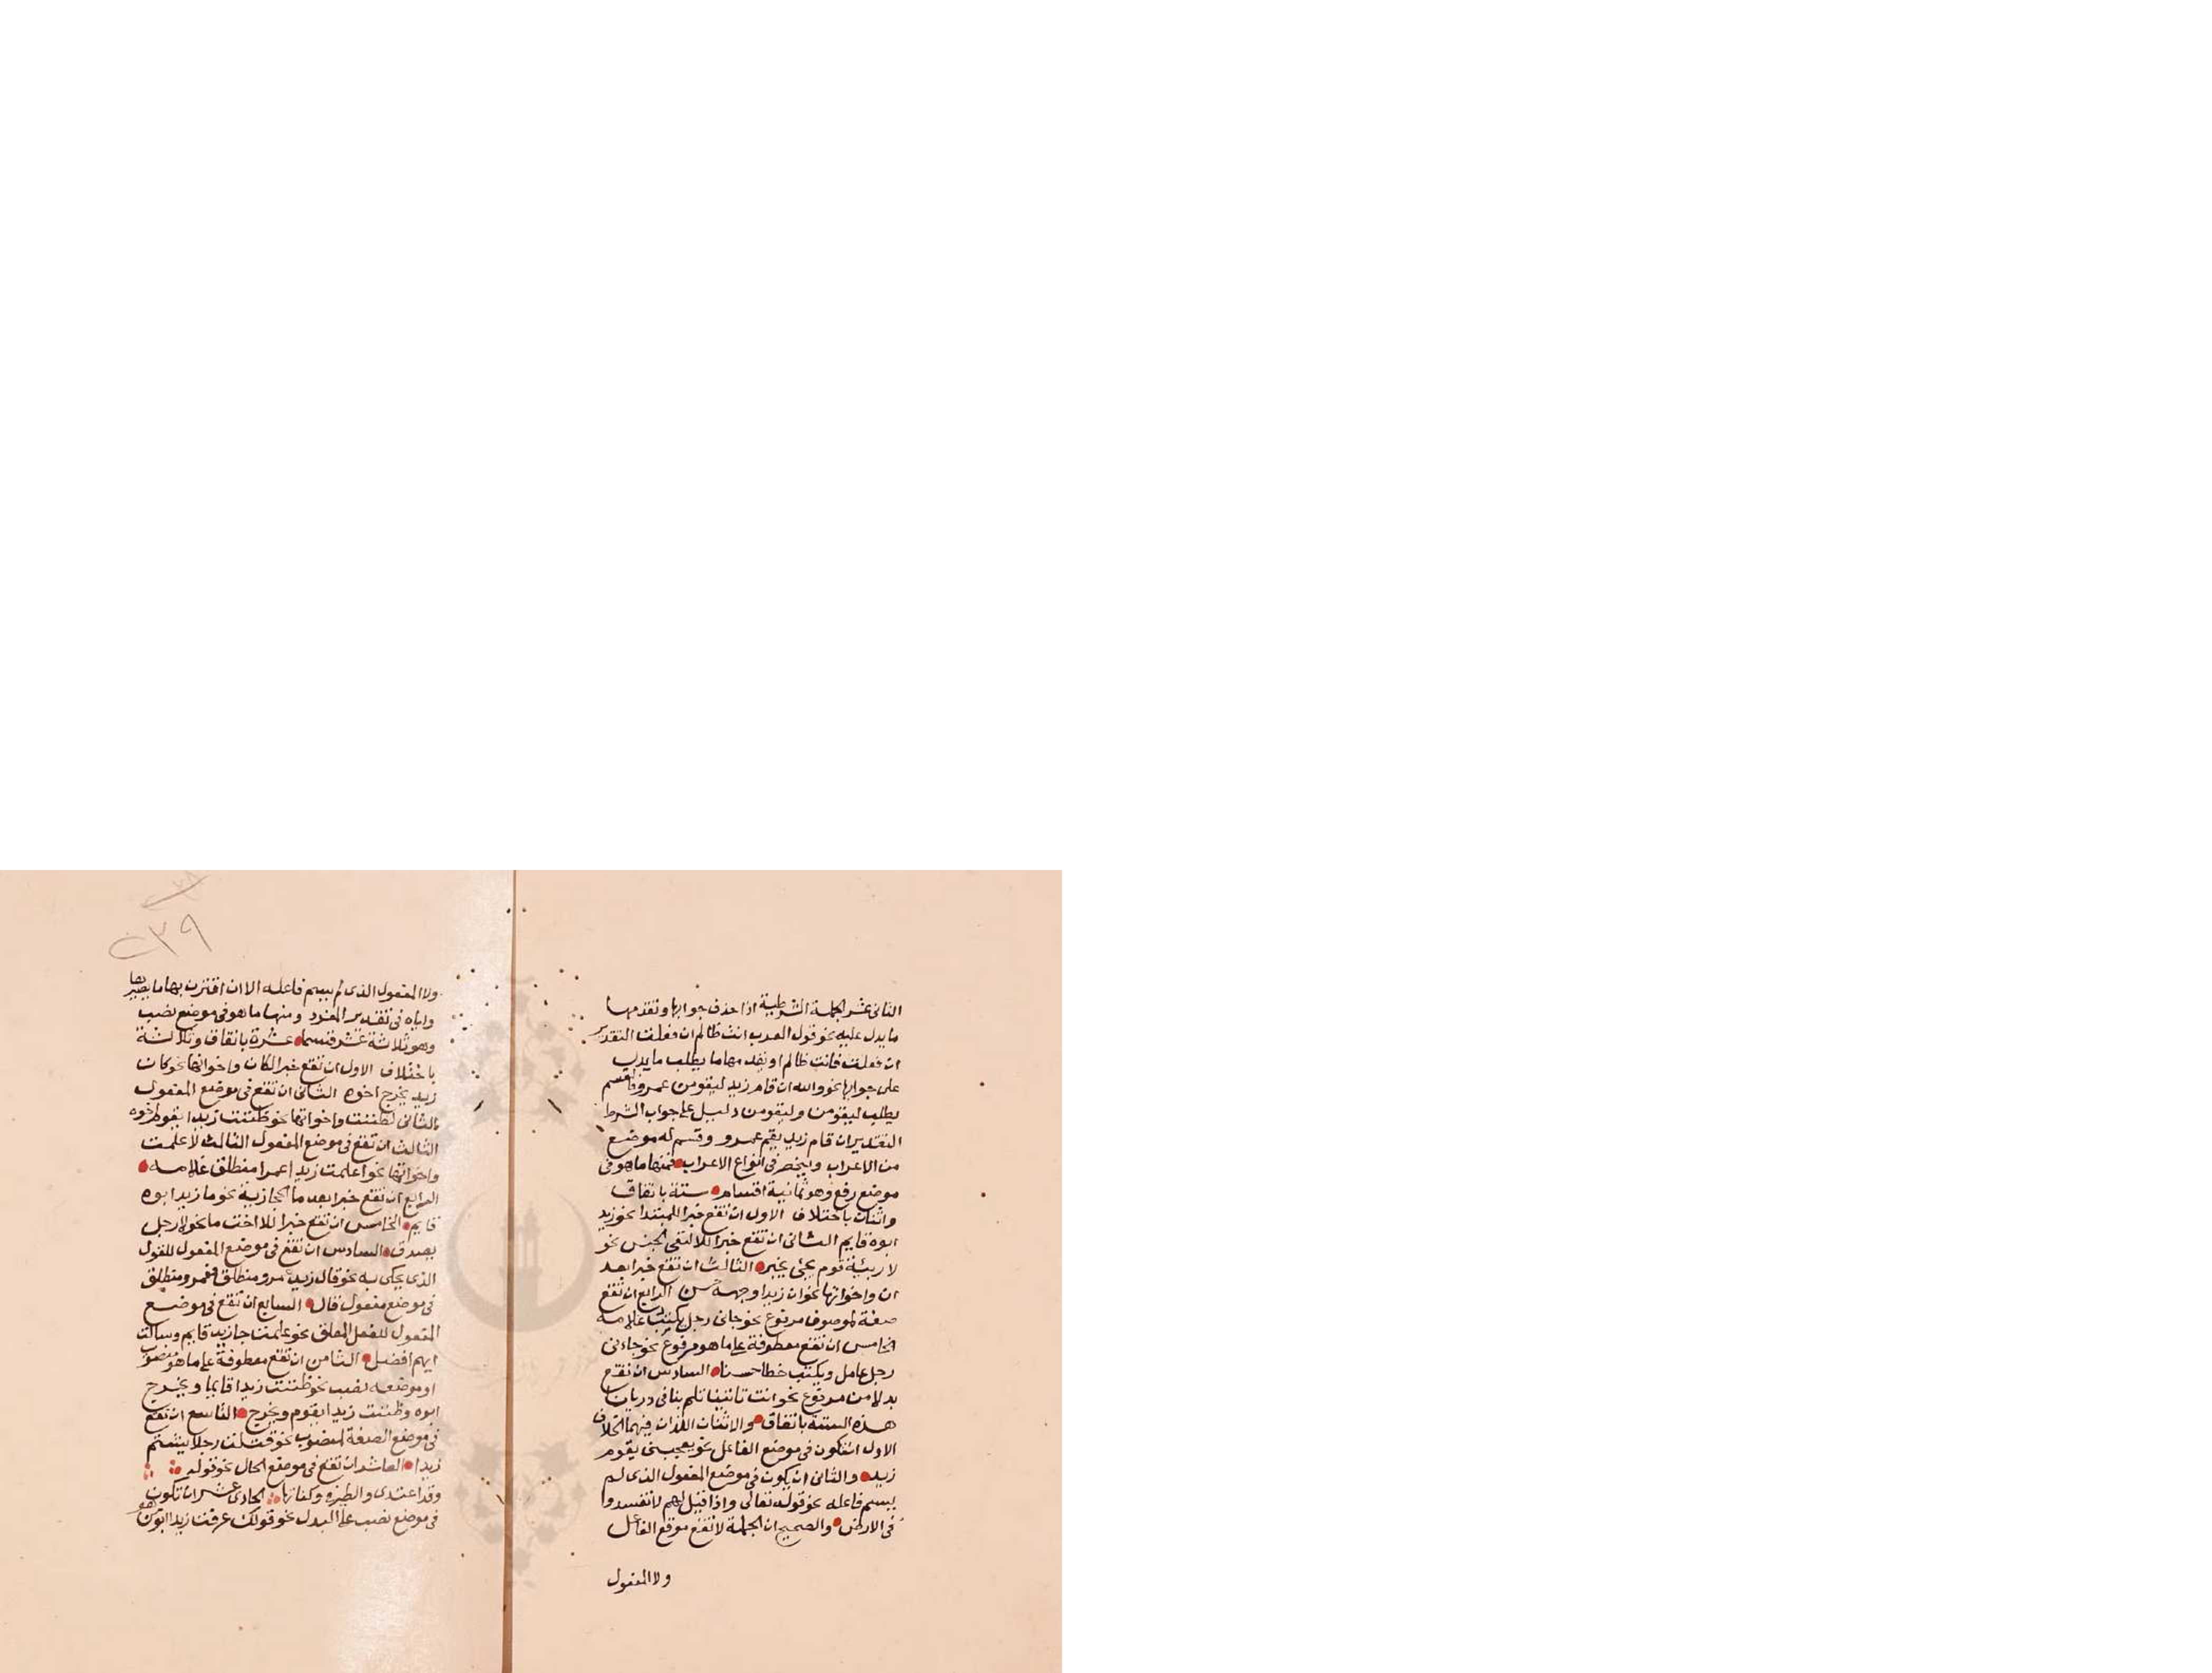 الثانى عشر الجملة الشرطية اذا حذف جوابها وتقدمها
ما يدل عليه نحو قول العرب انت ظالم ان فعلت التقدير
ان فعلت فانت ظالم او تقدمها ما يطلب ما يدل
على جوابها نحو والله ان قام زيد ليقومن عمرو فالقسم
يطلب ليقومن وليقومن دليل على جواب الشرط
التقدير ان قام زيد يقم عمرو وقسم له موضع
من الاعراب وينحصر فى انواع الاعراب فمنها ما هو فى
موضع رفع وهو ثمانية اقسام ستة باتفاق
واثنان باختلاف الاول ان تقع خبرا للمبتدا نحو زيد
ابوه قايم الثانى ان تقع خبرا للا لنفى الجنس نحو
لا ربيئة قوم يجئ بخير الثالث ان تقع خبرا بعد
ان واخواتها نحو ان زيدا وجهه حسن الرابع ان تقع
صفة لموصوف مرفوع نحو جانى رجل يكتب غلامه
الخامس ان تقع معطوفة على ما هو مرفوع نحو جاءنى
رجل عامل ويكتب خطا حسنا السادس ان تقع
بدلا من مرفوع نحو انت تاتينا تلم بنا فى ديارنا
هذه الستة باتفاق والاثنان اللذان فيهما الخلاف
الاول ان تكون فى موضع الفاعل نحو يعجبنى يقوم
زيد والثانى ان يكون فى موضع المفعول الذى لم
يسم فاعله نحو قوله تعالى واذا قيل لهم لا تفسدوا
فى الارض والصحيح ان الجملة لا تقع موقع الفاعل
ولا المفعول
٢٣٩
ولا المفعول الذى لم يسم فاعله الا ان اقترن بها ما يصيرها
واياه فى تقدير المفرد ومنها ما هو فى موضع نصب
وهو ثلاثة عشر قسما عشرة باتفاق وثلاثة
باختلاف الاول ان تقع خبرا لكان واخواتها نحو كان
زيد يخرج اخوه الثانى ان تقع فى موضع المفعول
الثانى لظننت واخواتها نحو ظننت زيدا يقوم اخوه
الثالث ان تقع فى موضع المفعول الثالث لاعلمت
واخواتها نحو اعلمت زيدا عمرا منطلق غلامه
الرابع ان تقع خبرا بعد ما الحجازية نحو ما زيد ابوه
قايم الخامس ان تقع خبرا للا اخت ما نحو لا رجل
يصدق السادس ان تقع فى موضع المفعول للقول
الذى يحكى به نحو قال زيد عمرو منطلق فعمرو منطلق
فى موضع مفعول قال السابع ان تقع فى موضع
المفعول للفعل المعلق نحو علمت ما زيد قايم وسالت
ايهم افضل الثامن ان تقع معطوفة على ما هو منصوب
او موضعه نصب نحو ظننت زيدا قايما ويخرج
ابوه وظننت زيدا يقوم ويخرج التاسع ان تقع
فى موضع الصفة لمنصوب نحو قتلت رجلا يشتم
زيدا العاشر ان تقع فى موضع الحال نحو قوله
وقد اغتدى والطير فى وكناتها الحادى عشر ان تكون
فى موضع نصب على البدل نحو قولك عرفت زيدا ابو من هو